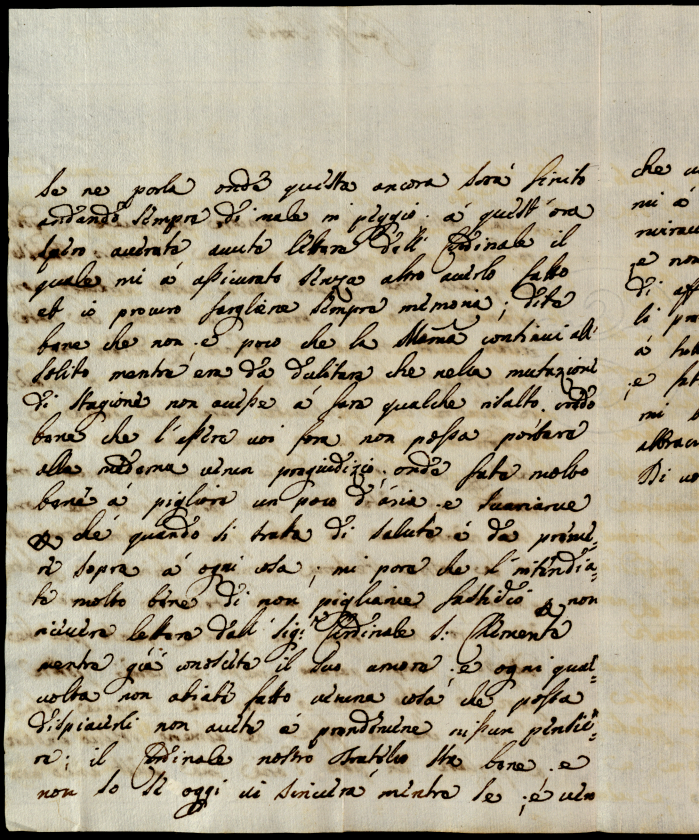 se ne parla onde questa ancora sarà finita
andando sempre di male in peggio. à quest'ora
averete avuta lettera dell' Cardinale il
quale mi à assicurato senza altro averlo fatto
et io procuro fargliene sempre memoria; dite
bene che non è poco che la Mamà continui all'
solito mentre era da dubitare che nella mutazione
di stagione non avesse à fare qualche risalto. credo
bene che l'essere voi fora non possa portare
alla medema verun pregiudizio. onde fate molto
bene à pigliare un poco d'aria e svariarve
che quando si trata di saluta è da preme=
re sopra à ogni cosa; mi pare che l'intendia=
te molto bene di non pigliarve fastidio non
ricevere lettera dall' Sig.re Cardinale S: Clemente
mentre già conoscete il suo amore, e ogni qual=
volta non abiate fatto veruna cosa che possa
dispiacerli non avete à prendervene nissun pensie=
re; il Cardinale nostro fratello sta bene e
non so se oggi vi scriverà mentre se è ven
che
mi à
e non
di aff
li
à
e
mi
abbrac
Di vo